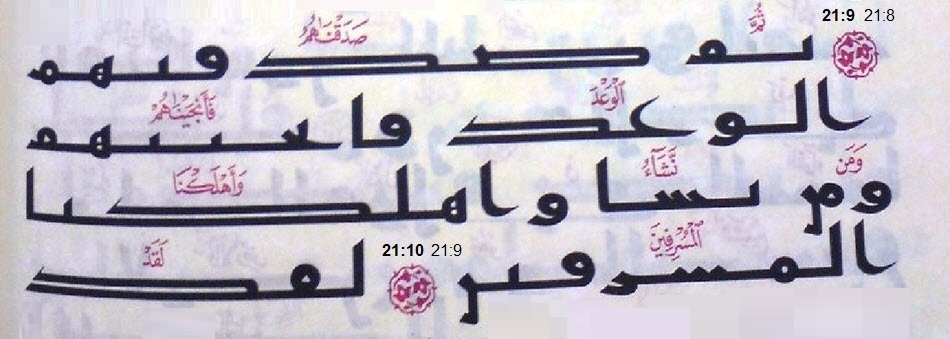 21:9 21:8
ثُمَّ صَدَقْنَاهُمُ
ثم صدقنهم
الْوَعْدَ فَأَنْجَيْنَاهُمْ
الوعد فانجينهم
وَمَن نَّشَآءُ وَأَهْلَكْنَا
ومن نشا واهلكنا
الْمُسْرِفِينَ 21:10 21:9 لَقَدْ
المسرفين لقد